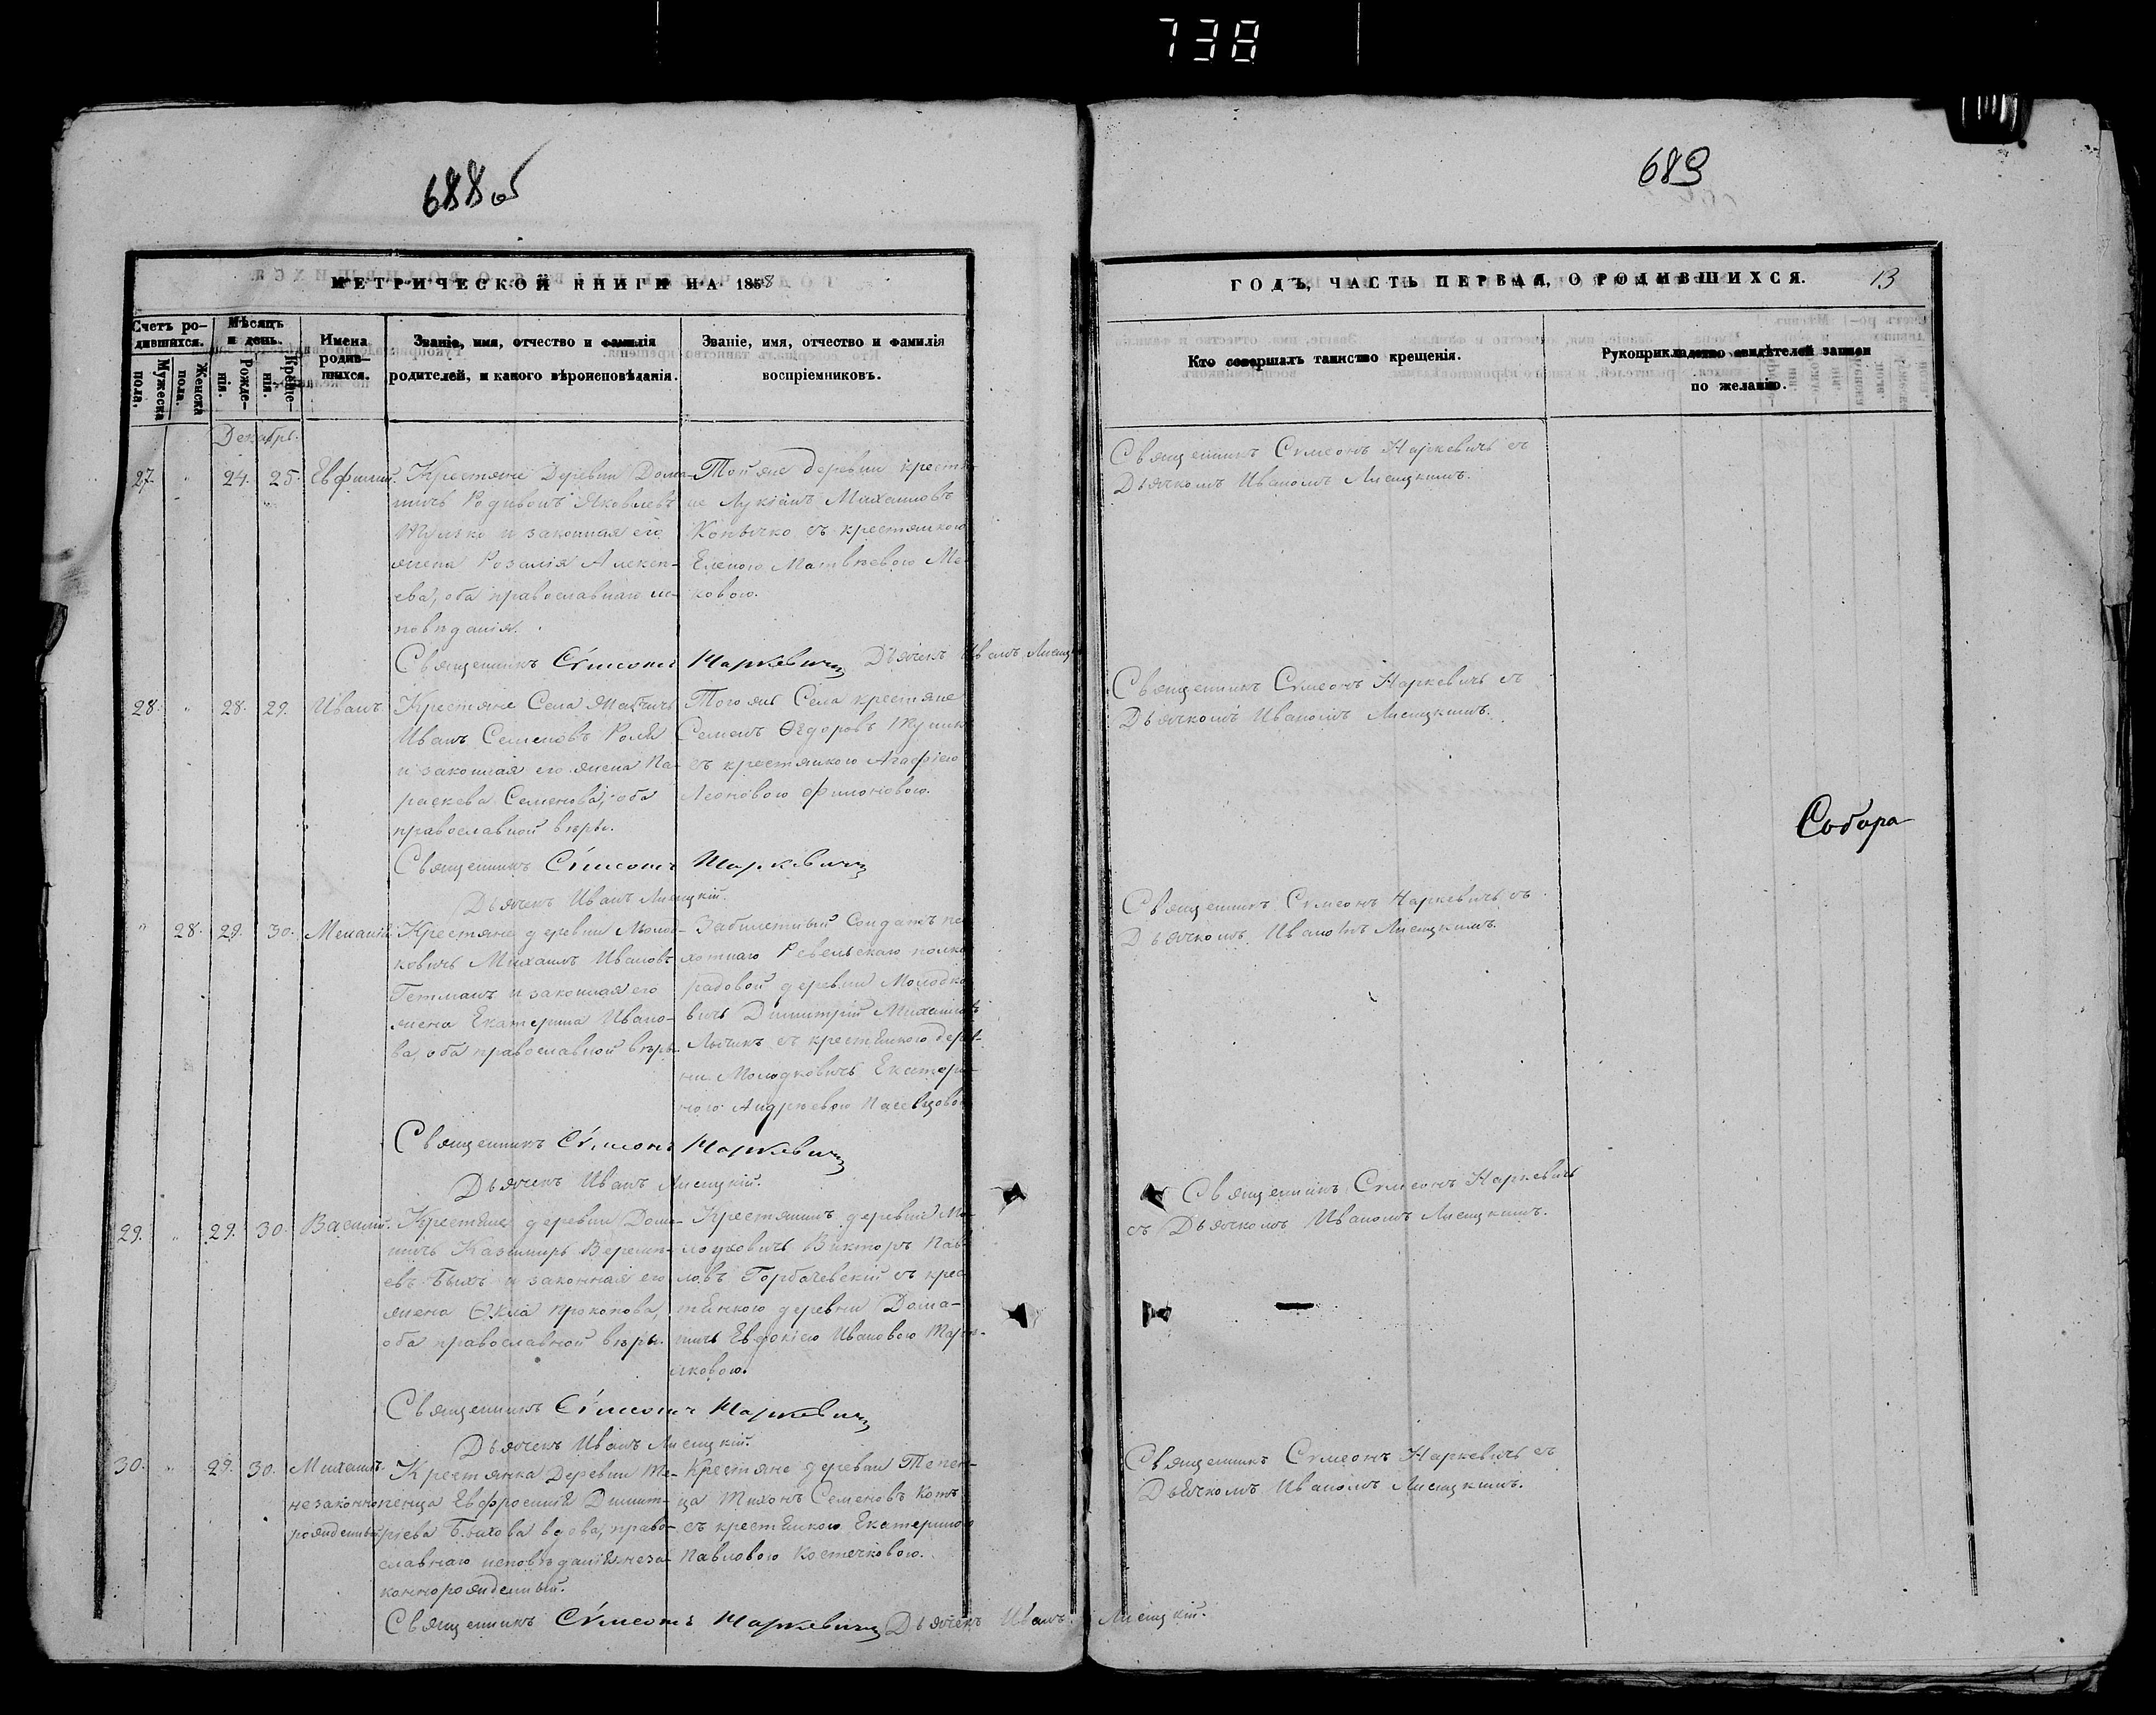 738
688 об
689
МЕТРИЧЕСКОЙ КНИГИ НА 1858
ГОДЪ, ЧАСТЬ ПЕРВАЯ, О РОДИВШИХСЯ. 13
Счетъ ро-
дившихся.
Мужеска
пола.
Женска
пола.
Мѣсяцъ
и день.
Рожде-
нія.
Креще-
нія.
Имена
родив-
шихся.
Званіе, имя, отчество и фамилія
родителей, и какого вѣроисповѣданія.
Званіе, имя, отчество и фамилія
воспріемниковъ.
Кто совершалъ таинство крещенія.
Рукоприкладство свидѣтелей записи
по желанію.
Декабрь.
27. " 24. 25. Евфимій.
Крестяне Деревни Дома-
шичъ Родивонъ Яковлевъ
и законная его
жена Розалія Алексѣ-
ева, оба православнаго ис-
повѣданія.
Той же деревни крестя-
не Лукіанъ Михаиловъ
Копычко съ крестянкою
Еленою Матвѣевою
ковою.
Священникъ Сѵмеонъ Наркевичъ съ
Дьячкомъ Иваномъ Лисицкимъ.
Священникъ Сѵмеонъ Наркевичъ Дьячекъ Иванъ
28. " 28. 29. Иванъ.
Крестяне Села
Иванъ Семеновъ
и законная его жена Па-
раскева Семенова, оба
православной вѣры.
Того же Села крестяне
Семенъ Ѳедоровъ
съ крестянкою Агафіею
Леоновою Филоновою.
Священникъ Сѵмеонъ Наркевичъ съ
Дьячкомъ Иваномъ Лисицкимъ.
Собора
Священникъ Сѵмеонъ Наркевичъ
Дьячекъ Иванъ Лисицкій.
" 28. 29. 30. Меланія
Крестяне деревни Молод-
ковичъ Михаилъ Ивановъ
Гетманъ и законная его
жена Екатерина Ивано-
ва, оба православной вѣры.
Забилетный Солдатъ пѣ-
хотнаго Ревельскаго полка
радовой деревни Молодко-
вичъ Димитрій Михаиловъ
съ крестянкою дерев-
ни Молодковичъ Екатери-
ною Андрѣевою
Священникъ Сѵмеонъ Наркевичъ съ
Дьячкомъ Иваномъ Лисицкимъ.
Священникъ Сѵмеонъ Наркевичъ
Дьячекъ Иванъ Лисицкій.
29. " 29. 30. Василій.
Крестяне деревни Дома-
шичъ Казимиръ
евъ Быхъ и законная его
жена Ѳекла Прокопова,
оба православной вѣры.
Крестянинъ деревни Мо-
лодковичъ Викторъ Пав-
ловъ Горбачевскій съ крес-
тянкою деревни Дома-
шичъ Евдокіею Ивановою
ковою.
Священникъ Сѵмеонъ Наркевичъ
съ Дьячкомъ Иваномъ Лисицкимъ.
Священникъ Сѵмеонъ Наркевичъ
Дьячекъ Иванъ Лисицкій.
30. " 29. 30. Михаилъ
незаконно
рожденный
Крестянка Деревни Те-
пенца Евфросинія Димит-
ріева Быхова вдова, право-
славнаго исповѣданія неза-
коннорожденный.
Крестяне деревни Тепен-
ца Тихонъ Семеновъ Котъ
съ крестянкою Екатериною
Павловою Костечковою.
Священникъ Сѵмеонъ Наркевичъ съ
Дьячкомъ Иваномъ Лисицкимъ.
Священникъ Сѵмеонъ Наркевичъ Дьячекъ Иванъ Лисицкій.